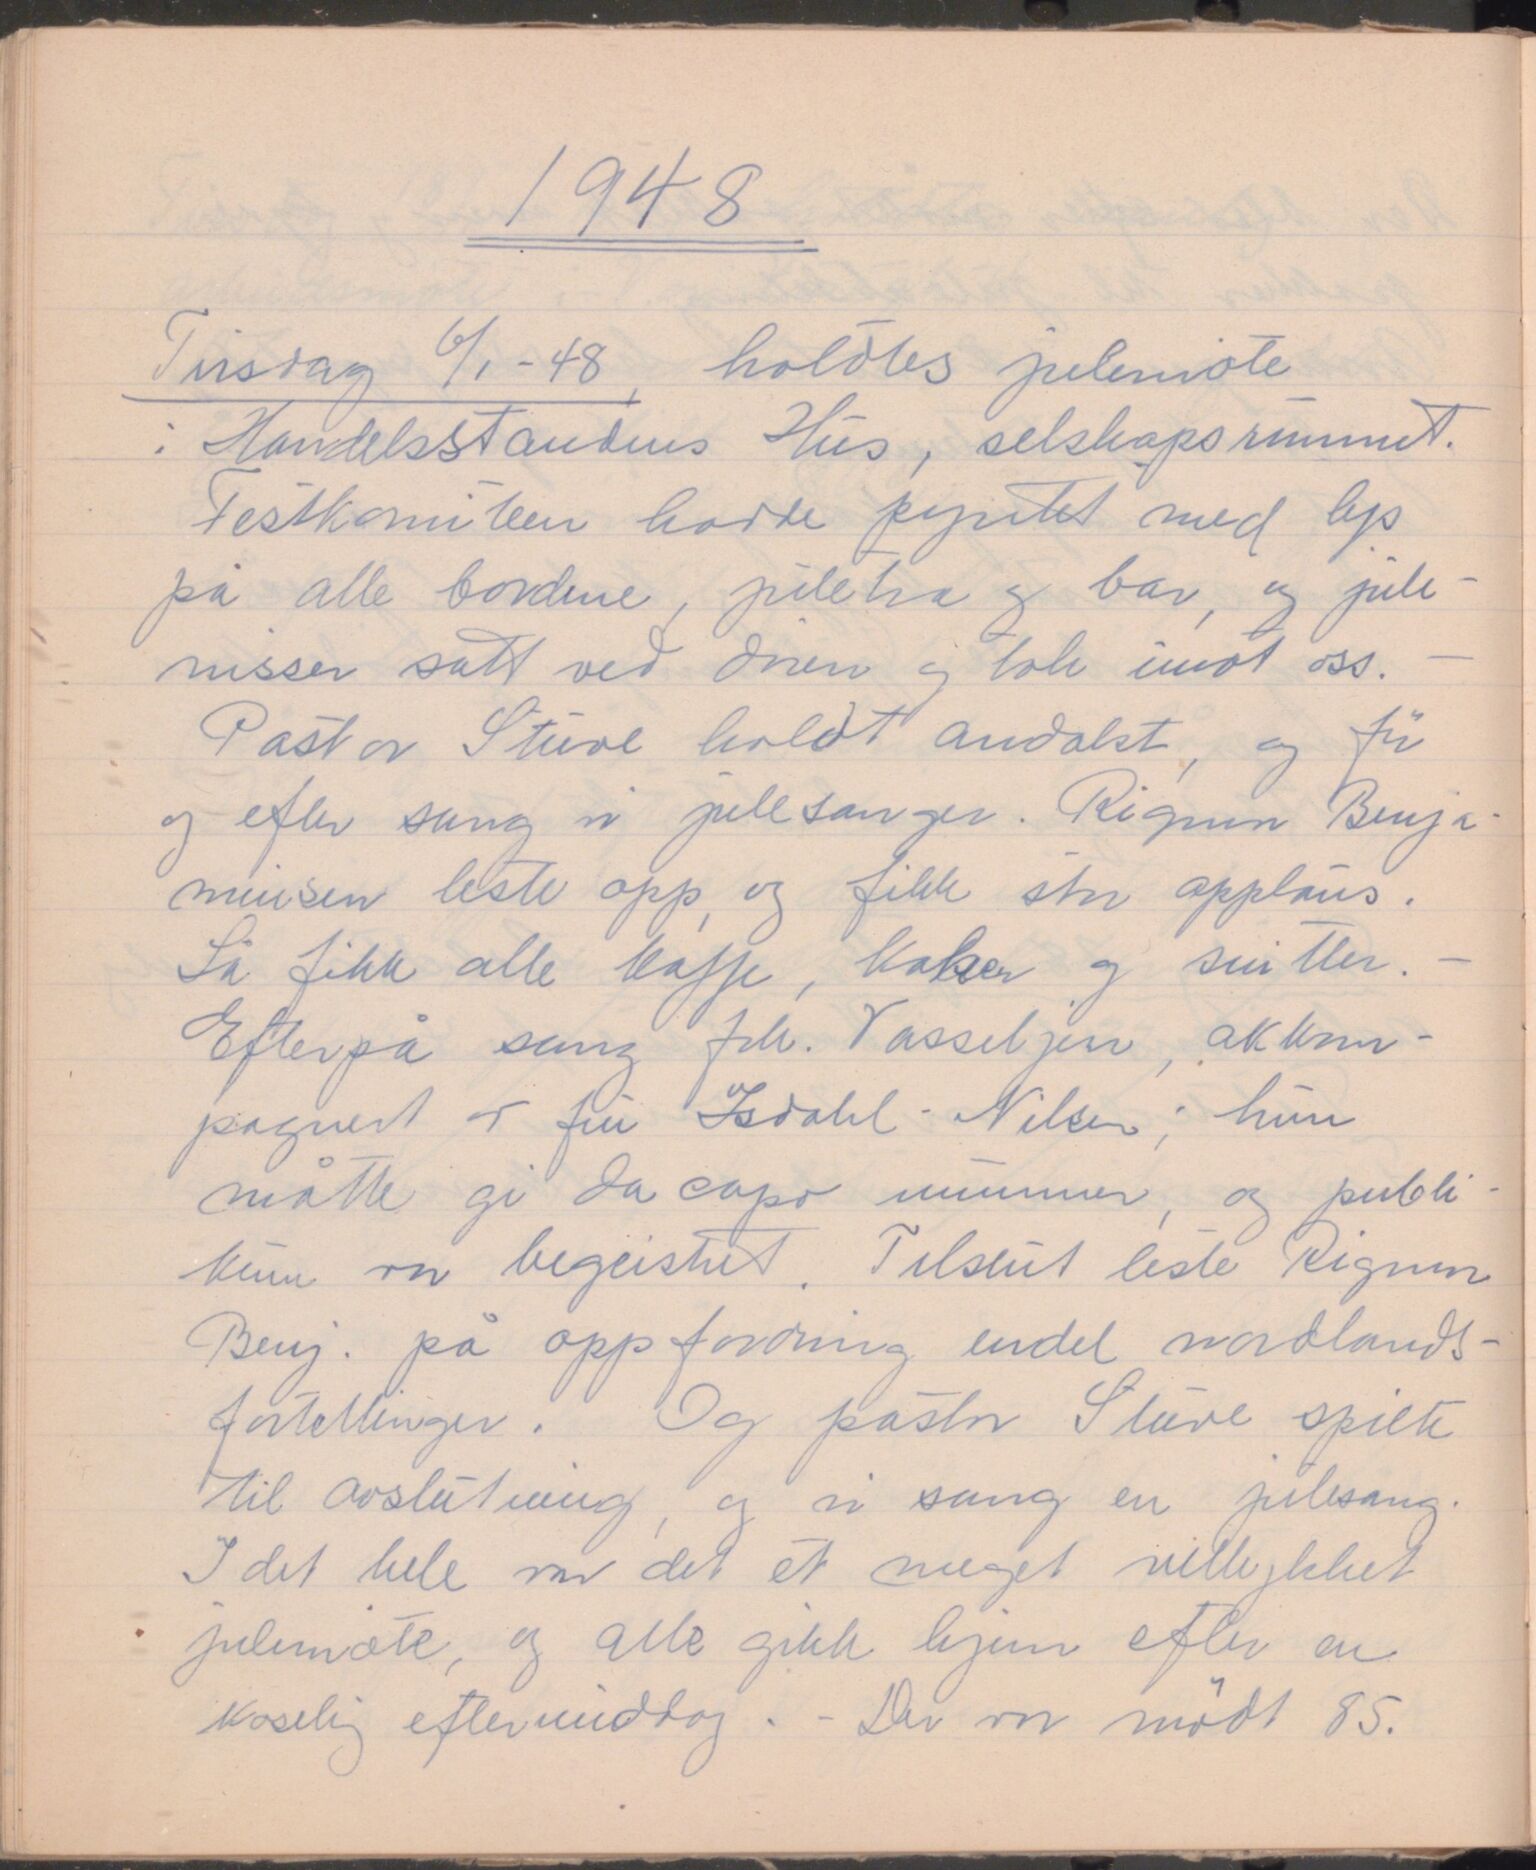 1948
Tirsdag 6/1-48, holdtes julemøte
i Handelsstandens Hus, selskapsrummet.
Festkomiteen hadde pyntet med lys
på alle bordene, juletra og bar, og jule-
nisser satt ved døren og tok imot oss. —
Pastor Støve holdt andakt, og før
og efter sang vi julesanger. Rigmor Benja-
minsen leste opp, og fikk stor applaus.
Så fikk alle kaffe, kaker og snitter. —
Efterpå sang frk. Vasseljen, akkom-
pagnert av fru Isdahl-Nilsen; hun
måtte gi da capo nummer, og publi-
kum var begeistret. Tilslut leste Rigmor
Benj. på oppfordring endel nordlands-
fortellinger. Og pastor Støve spilte
til avslutning, og vi sang en julesang.
I det hele var det et meget vellykket
julemøte, og alle gikk hjem efter en
koselig eftermiddag. - Der var mødt 85.